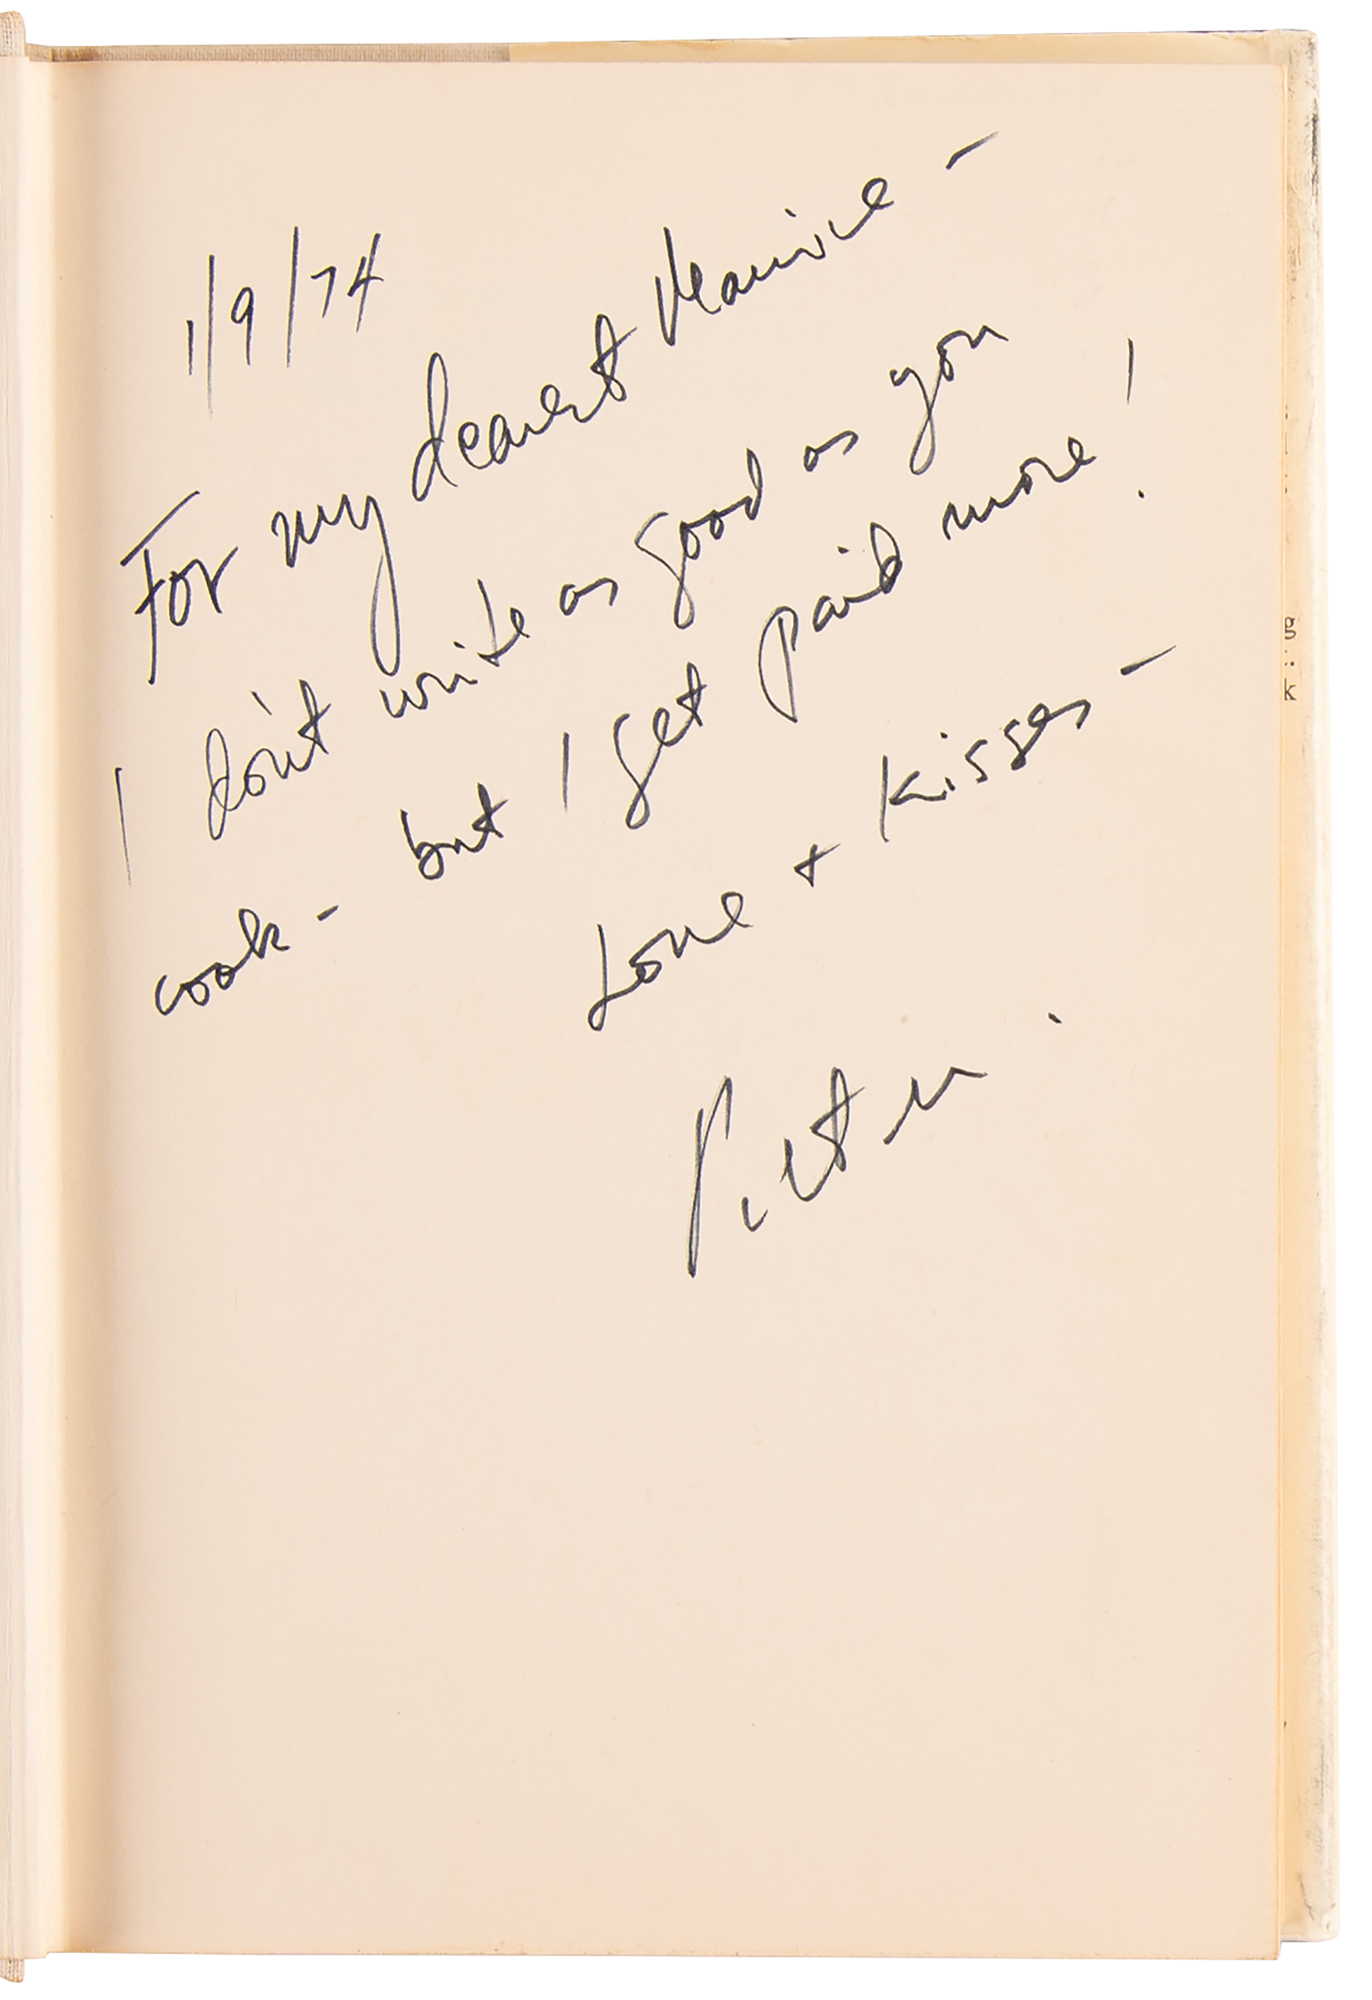 1/9/74
For my dearest Maurice –
I don't write as good as you
cook – but I get paid more!
Love + Kisses –
Peter.
g
k